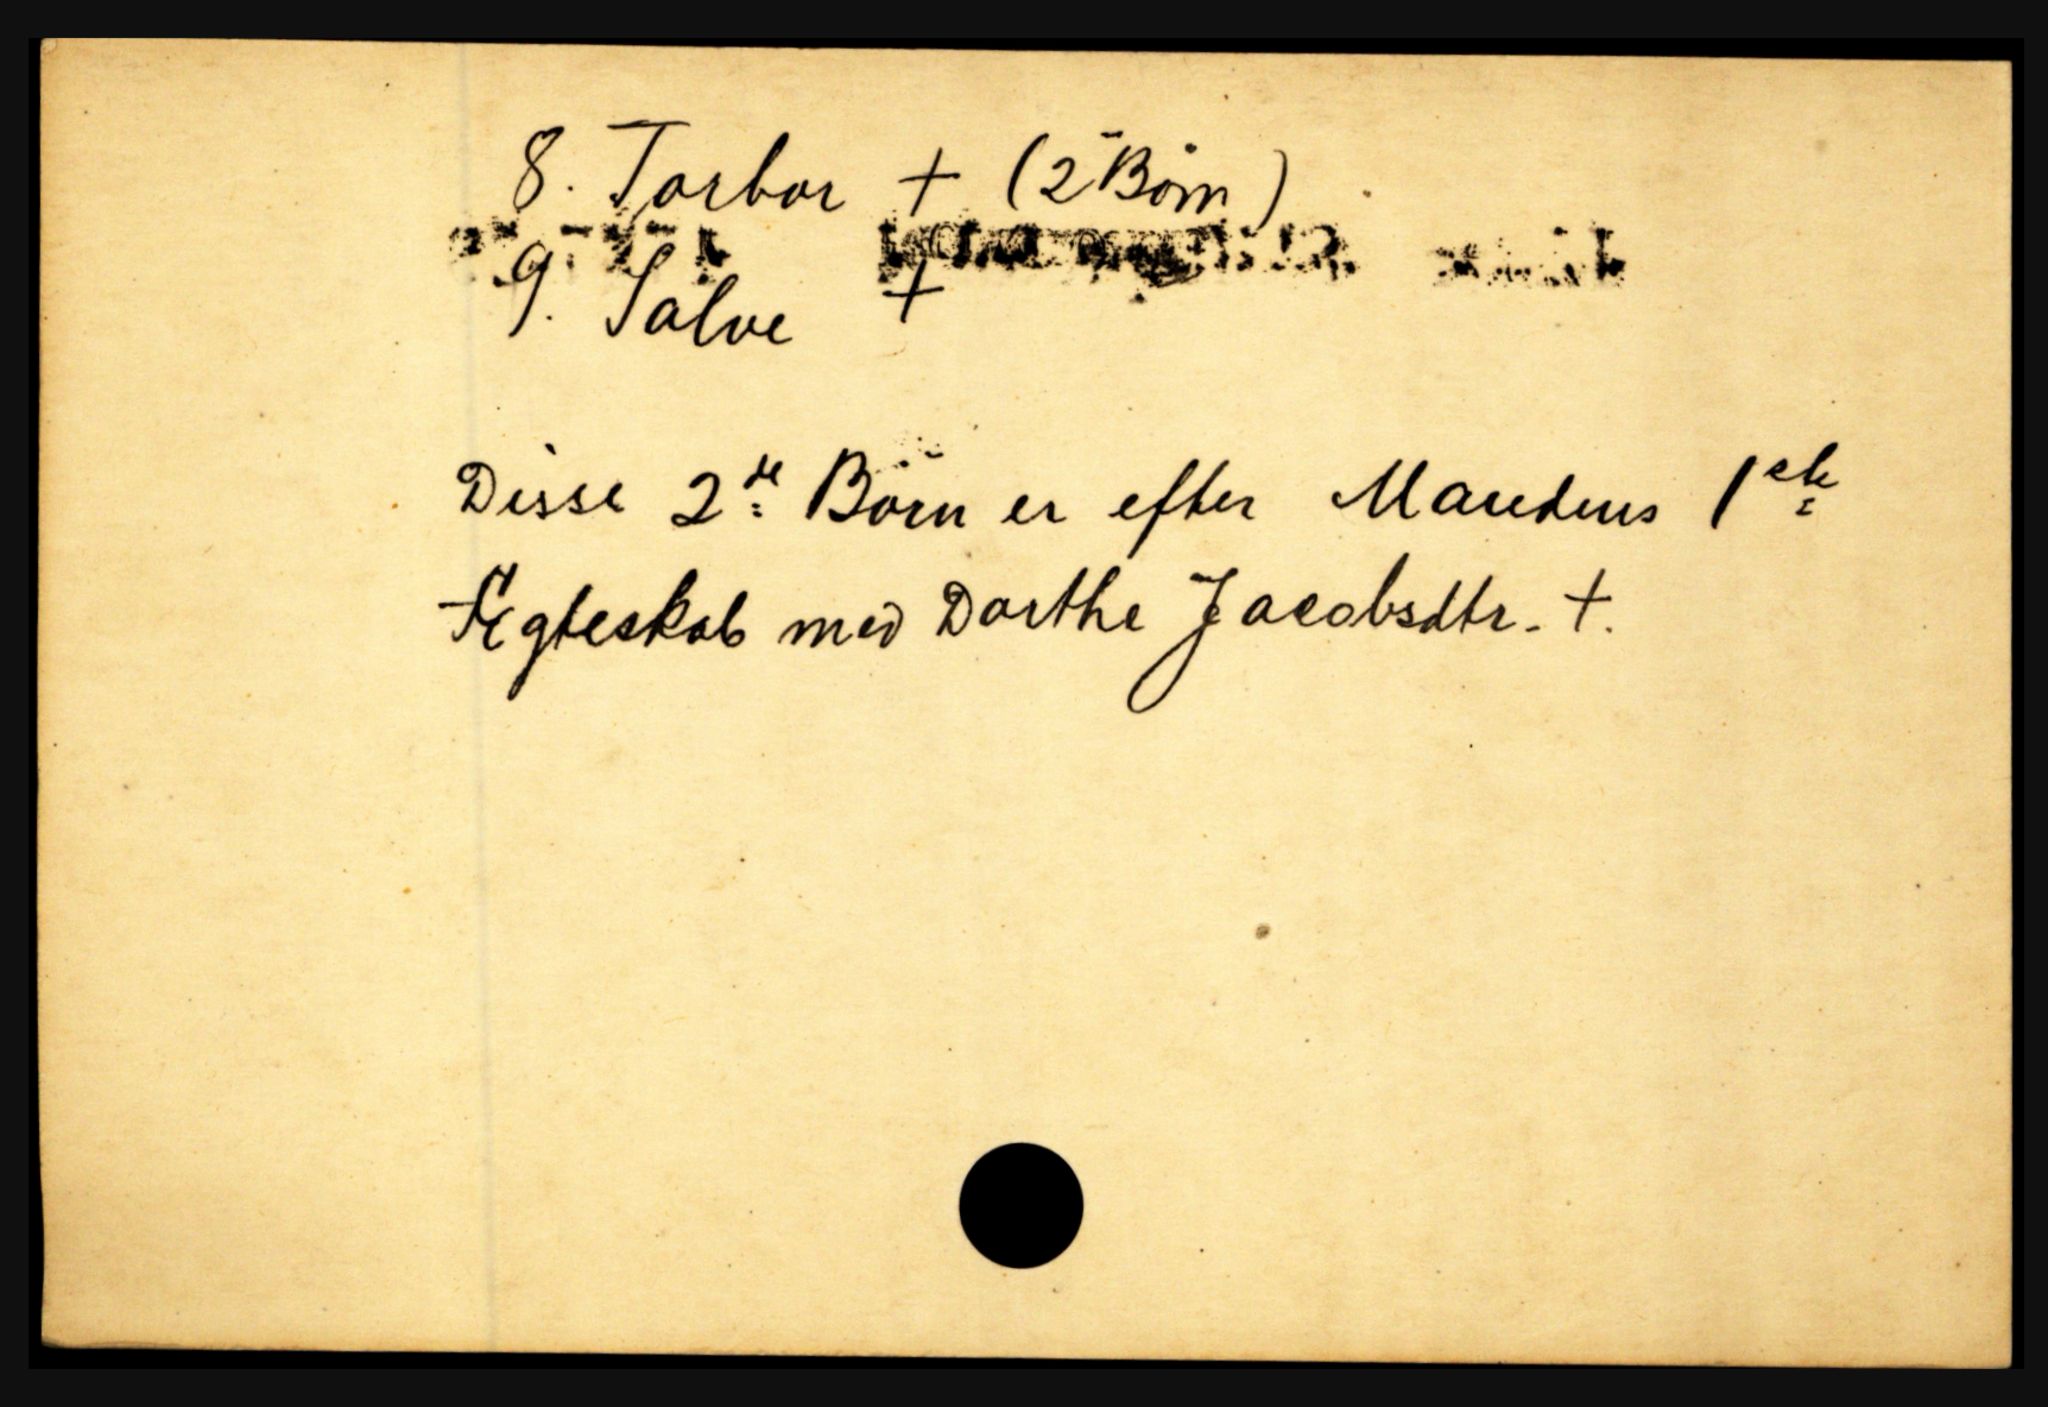 8. Torbor + (2 Børn)
9. Salve +
Disse 2de Børn er efter Mandens 1ste
Ægteskab med Dorthe Jacobsdtr. +.